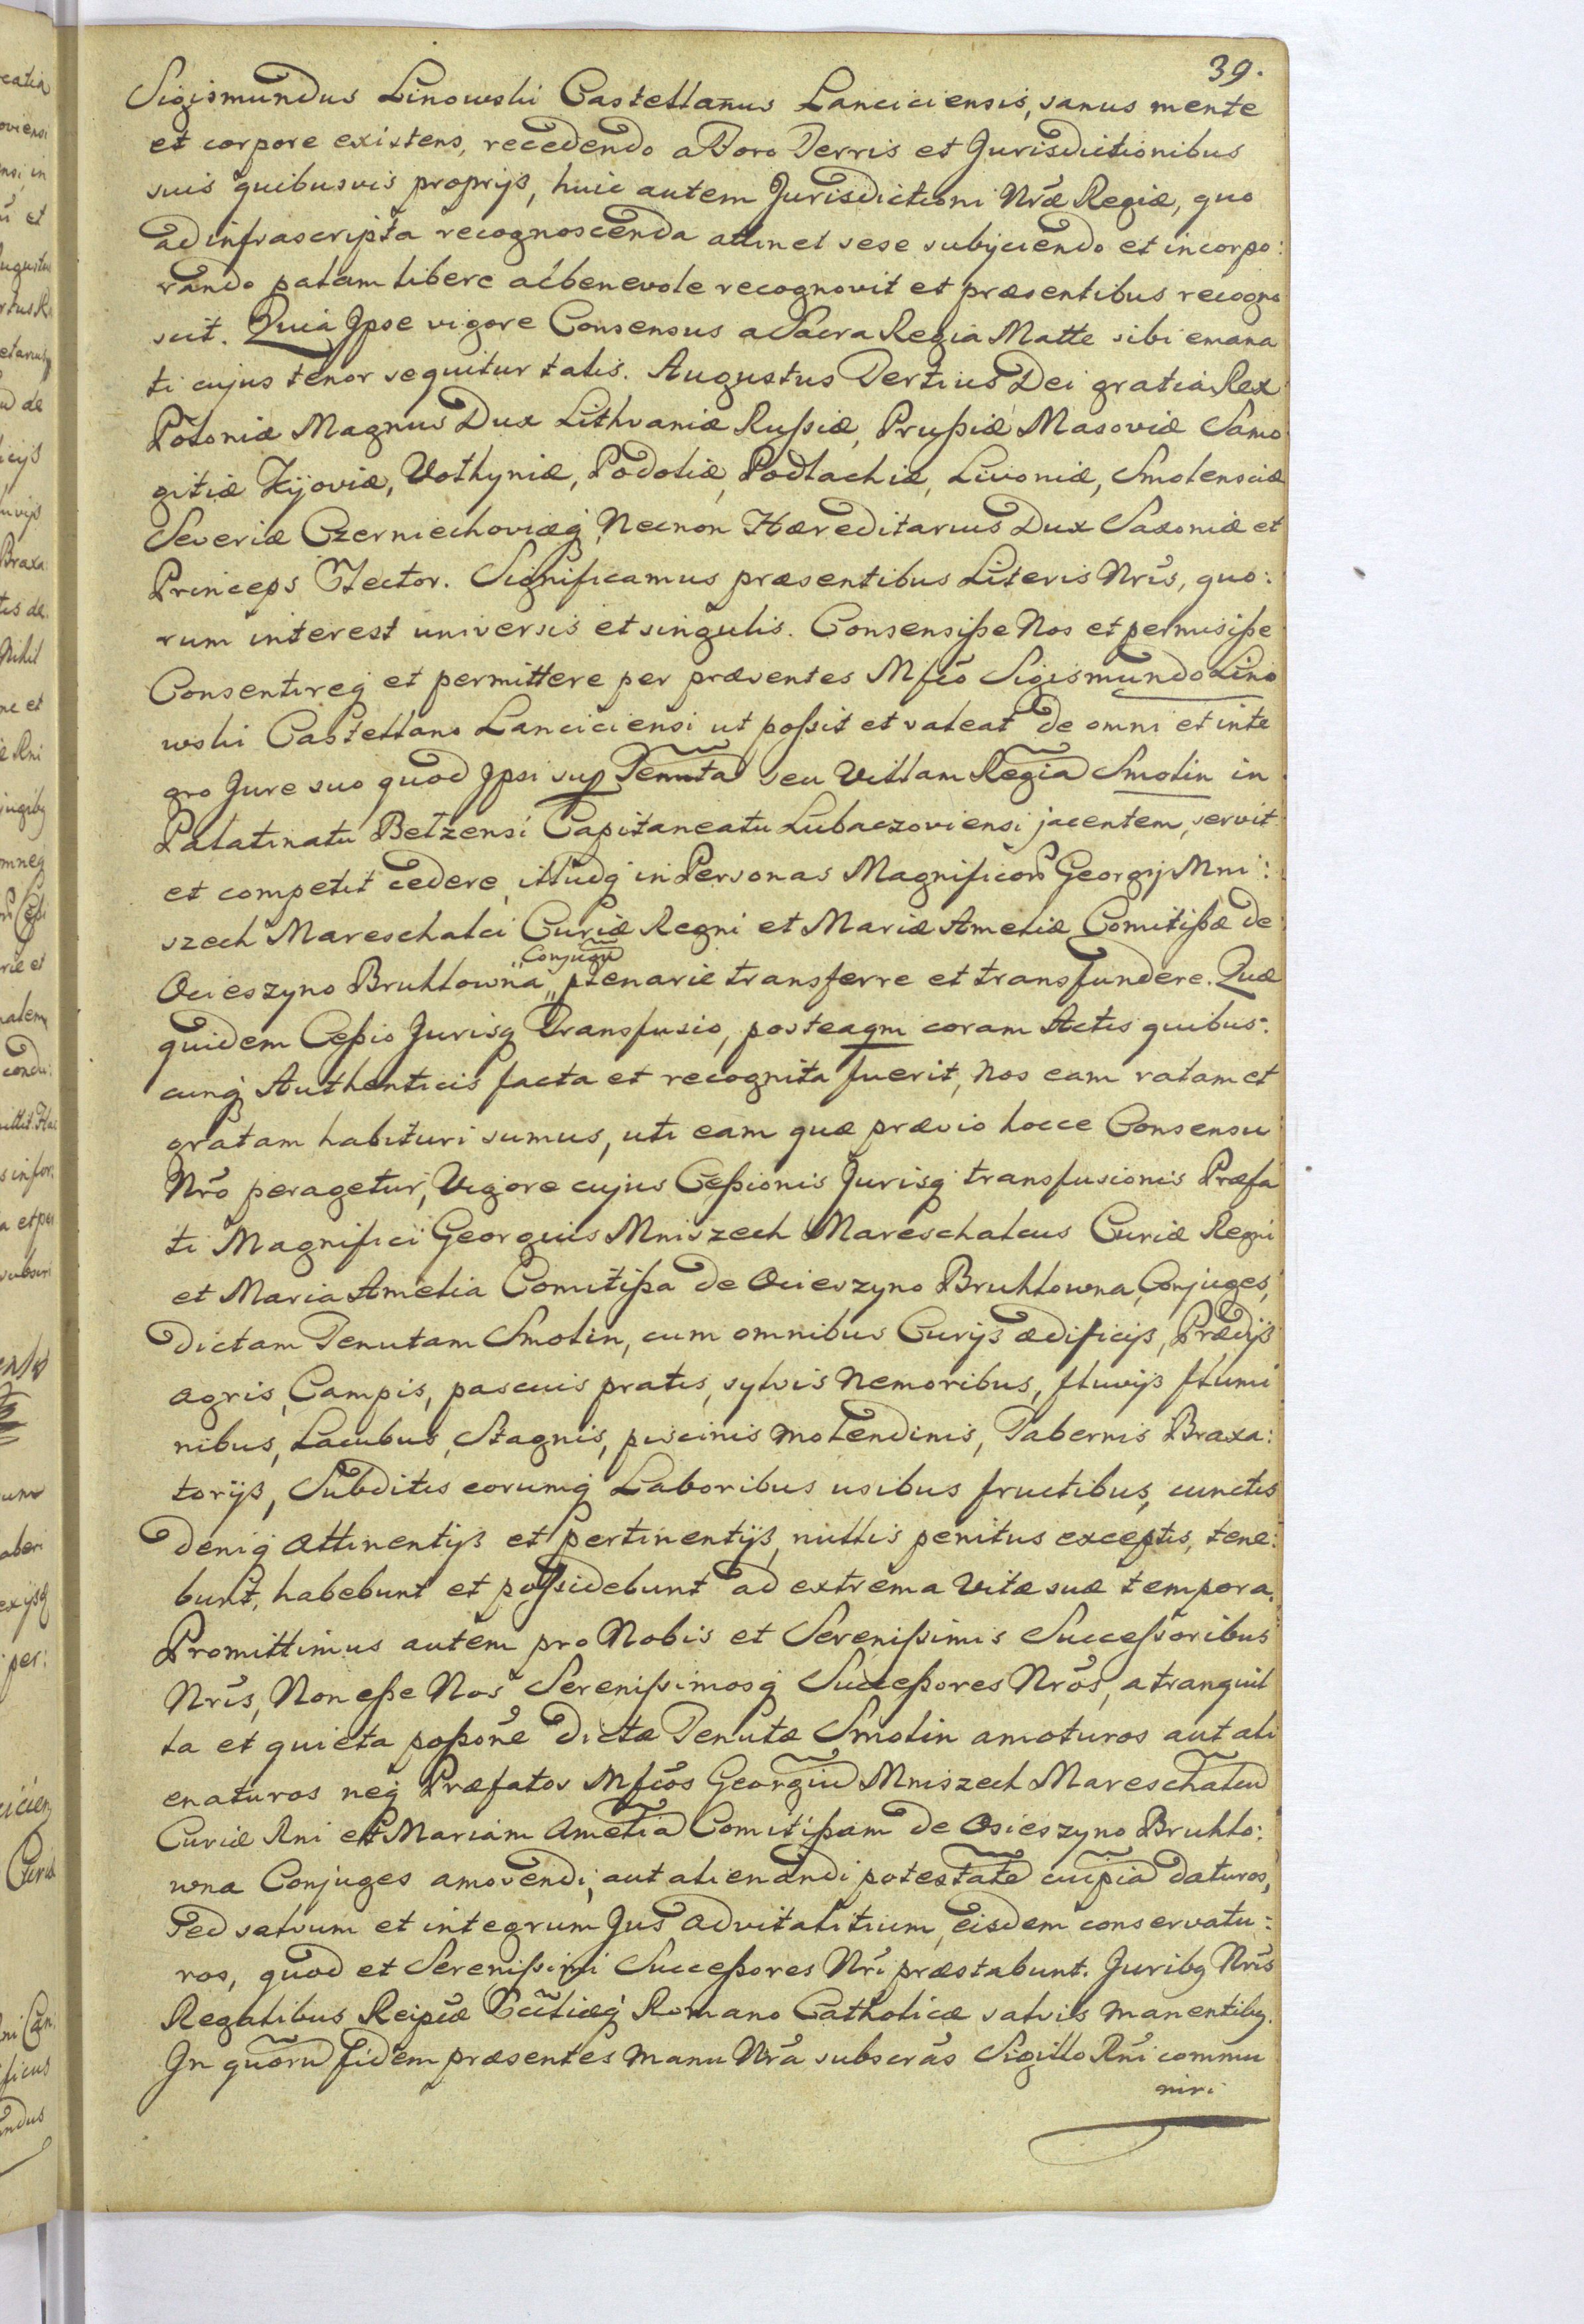 39.
Sigismundus Linowski Castellanus Lanciciensis, sanus mente
et corpore existens, recedendo a Foro Terris et Jurisdictionibus
suis quibusvis proprijs, huic autem Jurisdictioni Nræ Regiæ, quo
ad infrascripta recognoscenda attinet sese subijciendo et incorpo:
rando palam libere ac benevole recognovit et præsentibus recogno
scit. Quia Ipse vigore Consensus a Sacra Regia Matte sibi emana
ti cujus tenor sequitur talis. Augustus Tertius Dei gratia Rex
Poloniæ Magnus Dux Lithvaniæ Rußiæ, Prußiæ Masoviæ Samo
gitiæ Kijoviæ, Volhyniæ, Podoliæ, Podlachiæ, Livoniæ, Smolensciæ
Severiæ Czerniechoviæq, Necnon Hæreditarius Dux Saxoniæ et
Princeps Elector. Significamus præsentibus Literis Nris, quo:
rum interest universis et singulis. Consensiße Nos et permisiße
Consentireq et permittere per præsentes Mfco Sigismundo Lino
wski Castellano Lanciciensi ut poßit et valeat de omni et inte
gro Jure suo quod Ipsi sup Tenuta seu Villam Regia Smolin in
Palatinatu Belzensi Capitaneatu Lubaczoviensi jacentem, servit
et competit cedere, illudq in Personas Magnificor Georgij Mni:
szech Mareschalci Curiæ Regni et Mariæ Ameliæ Comitißæ de
Conjugu
Ocieszyno Bruhlowna „ plenarie transferre et transfundere. Quæ
quidem Ceßio Jurisq Transfusio, posteaqm coram Actis quibus:
cunq Authenticis facta et recognita fuerit, nos eam ratam et
gratam habituri sumus, uti eam quæ prævio hocce Consensu
Nro peragetur, Vigore cujus Ceßionis Jurisq transfusionis Præfa
ti Magnifici Georgius Mniszech Mareschalcus Curiæ Regni
et Maria Amelia Comitißa de Ocieszyno Bruhlowna, Conjuges,
dictam Tenutam Smolin, cum omnibus Curijs ædificijs, Prædijs
agris, Campis, pascuis pratis, sylvis Nemoribus, fluvijs flumi
nibus, Lacubus, Stagnis, piscinis molendinis, Tabernis Braxa:
torijs, Subditis eorumq Laboribus usibus fructibus, cunctis
deniq attinentijs et Pertinentijs, nullis penitus exceptis, tene:
bunt, habebunt et poßidebunt ad extrema Vitæ suæ tempora.
Promittimus autem pro Nobis et Serenißimis Succeßoribus
Nris, Non eße Nos Serenißimosq Succeßores Nros, a tranquil
la et quieta poßone dictæ Tenutæ Smolin amoturos aut ali
enaturos neq Præfatos Mfcos Georgiu Mniszech Mareschalcu
Curiæ Rni et Mariam Amelia Comitißam de Osieszyno Bruhlo:
wna Conjuges amovendi, aut alienandi potestate cuipia daturos,
Sed salvum et integrum Jus advitalitium, eisdem conservatu:
ros, quod et Serenißimi Succeßores Nri præstabunt. Juribq Nris
Regalibus Reipcæ Ecctiæq Romano Catholicæ salvis manentibq.
In quoru fidem præsentes manu Nra subscras Sigillo Rni commu
niri